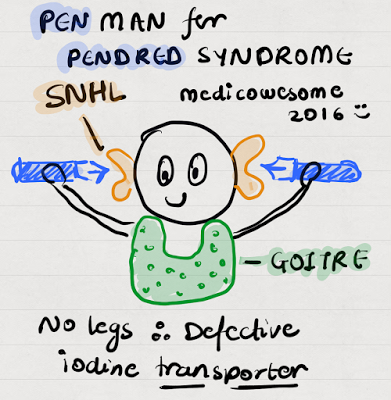 PEN MAN for
PENDRED SYNDROME
SNHL
medicowesome
2016 :)
GOITRE
No legs ∵ Defective
iodine transporter